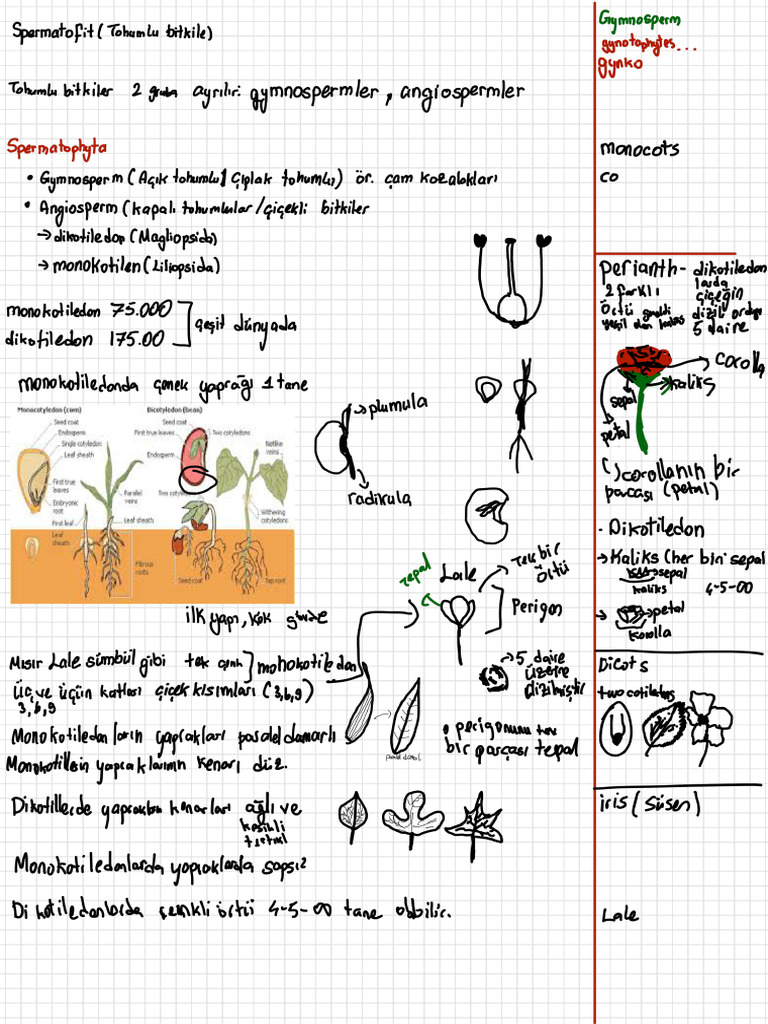 Spermatofit (Tohumlu bitkile)
Tohumlu bitkiler 2 gruba ayrılır: gymnospermler, angiospermler
Spermatophyta
• Gymnosperm (Açık tohumlu/ Çıplak tohumlu) ör. çam kozalakları
• Angiosperm (kapalı tohumlular/çiçekli bitkiler
→ dikotiledon (Magliopsida)
→ monokotilen (Liliopsida)
monokotiledon 75.000
dikotiledon 175.00
çeşit dünyada
monokotiledonda çenek yaprağı 1 tane
Monocotyledon (corn)
Seed coat
Endosperm
Single cotyledon
Leaf sheath
First true leaves
Embryonic root
First leaf
Leaf sheath
Parallel veins
Leaf sheath
Fibrous roots
Dicotyledon (bean)
Seed coat
First true leaves
Two cotyledons
Endosperm
Netlike veins
Two cotyledons
Withering cotyledons
Seed coat
Tap root
→ plumula
radikula
ilk yapı, kök gövde
tepal
Lale
Tek bir örtü
Perigon
Mısır Lale sümbül gibi tek çenek
monokotiledon
üç ve üçün katları çiçek kısımları (3,6,9)
3,6,9
→ 5 daire üzerine dizilmiştir
Monokotiledonların yaprakları paralel damarlı
• perigonunu tek bir parçası tepal
Monokotillein yapraklarının kenarı düz.
Dikotillerde yaprakları kenarları ağlı ve
kesikli
Monokotiledonlarda yapraklarda sapsız
Dikotiledonlarda çenkli örtü 4-5-00 tane olabilir.
Gymnosperm
gynotophytes...
gynko
monocots
co
perianth -
2 farklı
örtü
dikotiledon
larda
çiçeğin
5 daire
corolla
kaliks
sepal
petal
corollanın bir
parçası (petal)
. Dikotiledon
→ Kaliks (her biri sepal
→ sepal
kaliks 4-5-00
→ petal
korolla
Dicots
two cotiledns
iris (süsen)
Lale